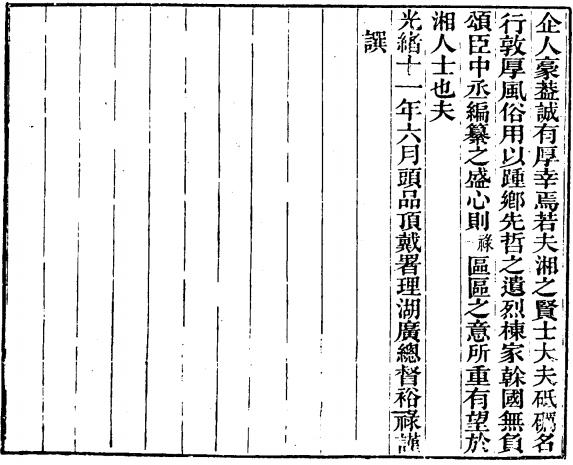 企人豪蓋誠有厚幸焉若夫湘之賢士大夫砥礪名
行敦厚風俗用以踵鄉先哲之遺烈棟家榦國無負
頌臣中丞編纂之盛心則祿區區之意所重有望於
湘人士也夫
光緒十一年六月頭品頂戴署理湖廣總督裕祿謹
譔